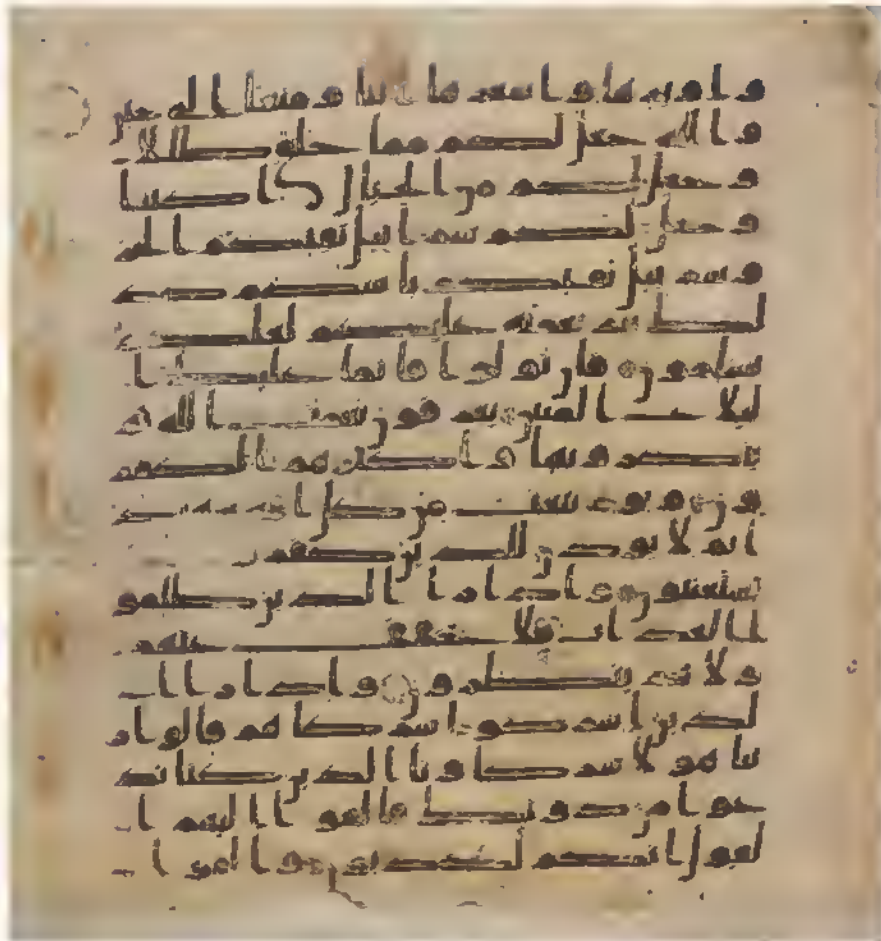 و اوبرها و اسعرها اثثا و متعا الى حين
و الله جعل لكم مما خلق ظللا
و جعل لكم من الجبل اكننا
و جعل لكم سربيل تقيكم الحر
و سربيل تقيكم باسكم كذ
لك يتم نعمته عليكم لعلكم
تسلمون فان تولوا فانما عليك ا
لبلغ المبين يعرفون نعمت الله ثم
ينكرونها و اكثرهم الكفر
ون و يوم نبعث من كل امه شهيد
ا ثم لا يوذن للذين كفرو
يستعتبون و اذا را ا الذين ظلمو
ا العذاب فلا يخفف عنهم
و لا هم ينظرون و اذا را ا
لذين اشركوا شركاهم قالوا ر
بنا هولا شركاونا الذين كنا ند
عوا من دونك فالقوا اليهم ا
لقول انكم لكذبون و القوا ا